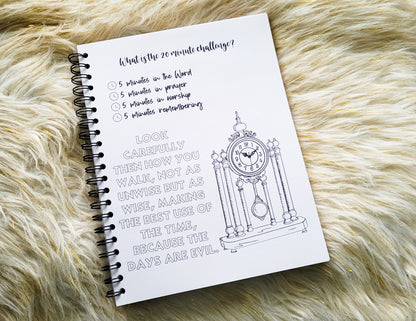 What is the 20 minute challenge?
5 minutes in the Word
5 minutes in prayer
5 minutes in worship
5 minutes remembering
LOOK
CAREFULLY
THEN HOW YOU
WALK, NOT AS
UNWISE BUT AS
WISE, MAKING
THE BEST USE OF
THE TIME,
BECAUSE THE
DAYS ARE EVIL.